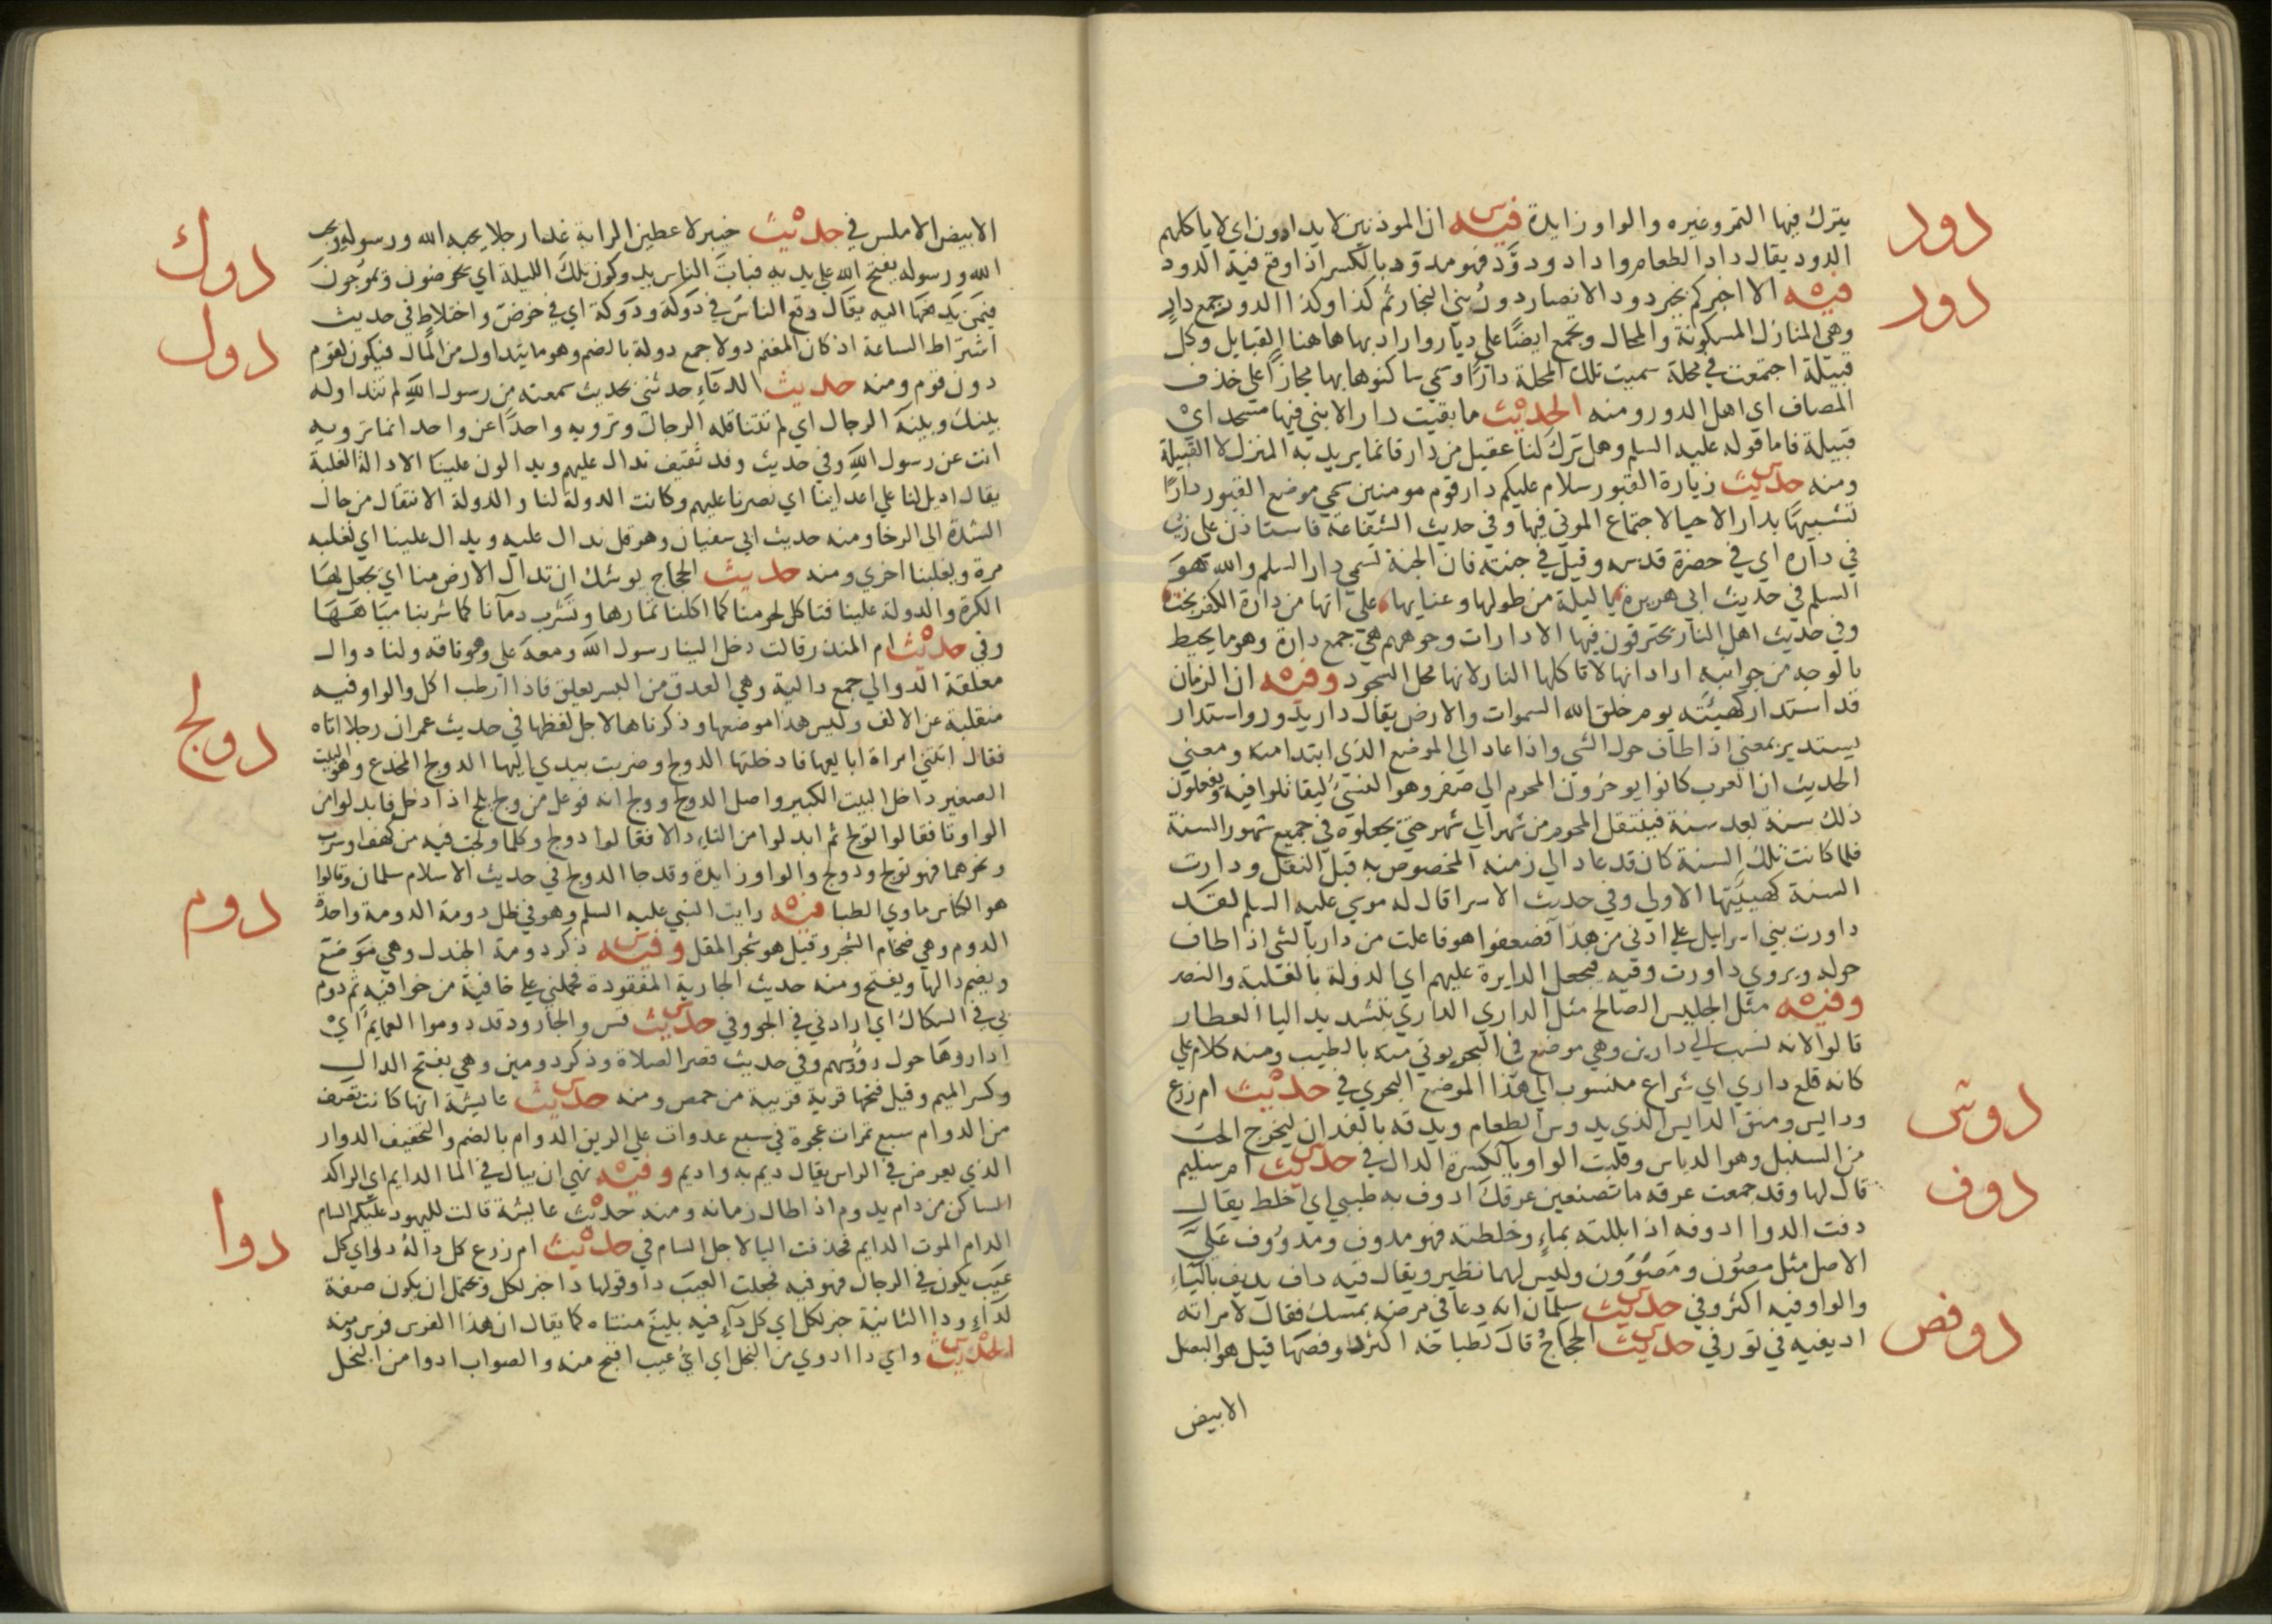 دود
يترك فيها التمر وغيره والواو زايدة فيه ان الموذنين لا يدادون اي لا ياكلهم
الدود يقال داد الطعام واداد ودوّد فهو مدوّد بالكسر اذا وقع فيه الدود
دور
فيه الا اخبركم بخير دور الانصار دور بني النجار ثم كذا وكذا الدور جمع دار
وهي المنازل المسكونة والمحال وتجمع ايضًا علي ديار واراد بها هاهنا القبايل وكل
قبيلة اجتمعت في محلة سميت تلك المحلة دارًا وسمي ساكنوها بها مجازًا علي حذف
المضاف اي اهل الدور ومنه الحديث ما بقيت دار الا بني فيها مسجد اي
قبيلة فاما قوله عليه السلم وهل ترك لنا عقيل من دار فانما يريد به المنزل لا القبيلة
ومنه حديث زيارة القبور سلام عليكم دار قوم مومنين سمي موضع القبور دارًا
تشبيهًا بدار الاحيا لاجتماع الموتي فيها وفي حديث الشفاعة فاستاذن علي ربي
في داره اي في حضرة قدسه وقيل في جنته فان الجنة تسمي دار السلم والله هو
السلم في حديث ابي هريرة يا ليلة من طولها وعنايها علي انها من دارة الكفر نجت
وفي حديث اهل النار يحترقون فيها الا دارات وجوههم هي جمع دارة وهو ما يحيط
بالوجه من جوانبه اراد انها لا تاكلها النار لانها محل السجود وفيه ان الزمان
قد استدار كهيئته يوم خلق الله السموات والارض يقال دار يدور واستدار
يستدير بمعني اذا طاف حول الشي واذا عاد الي الموضع الذي ابتدا منه ومعني
الحديث ان العرب كانوا يوخرون المحرم الي صفر وهو النسيُ ليقاتلوا فيه ويفعلون
ذلك سنة بعد سنة فينتقل المحرم من شهر الي شهر حتي يجعلوه في جميع شهور السنة
فلما كانت تلك السنة كان قد عاد الي زمنه المخصوص به قبل النقل ودارت
السنة كهيئتها الاولي وفي حديث الاسرا قال له موسي عليه السلم لقد
داورت بني اسرايل علي ادني من هذا فضعفوا هو فاعلت من دار بالشي اذا طاف
حوله ويروي راودت وفيه فيجعل الدايرة عليهم اي الدولة بالغلبة والنصر
وفيه مثل الجليس الصالح مثل الداري الداري بتشديد اليا العطار
قالوا لانه نسب الي دارين وهي موضع في البحر يوتي منه بالطيب ومنه كلام علي
كانه قلع داري اي شراع منسوب الي هذا الموضع البحري في حديث ام زرع
دوس
ودايس ومنق الدايس الذي يدوس الطعام ويدقه بالفدان ليخرج الحب
من السنبل وهو الدياس وقلبت الواو يا لكسرة الدال في حديث ام سليم
دوف
قال لها وقد جمعت عرقه ما تصنعين عرقك ادوف به طيبي اي اخلط يقال
دفت الدوا ادوفه اذا بللته بماءٍ وخلطته فهو مدوف ومدووف علي
الاصل مثل مصُون ومَصوُون وليس لهما نظير ويقال فيه داف يديف بالياءِ
والواو فيه اكثر وفي حديث سلمان انه دعا في مرضه بمسك فقال لامراته
دوفص
اديفيه في تور وفي حديث الحجاج قال لطباخه اكثر دوفصها قيل هو البصل
الابيض
الابيض الاملس في حديث خيبر لاعطين الراية غدا رجلا يحبه الله ورسوله ويحب
دوك
الله ورسوله يفتح الله علي يديه فبات الناس يدوكون تلك الليلة اي يخوضون ويموجون
فيمن يدفعها اليه يقال وقع الناس في دَوكة ودوكة اي في خوض واختلاط في حديث
دول
اشتراط الساعة اذ كان المغنم دولا جمع دولة بالضم وهو ما يتداول من المال فيكون لقوم
دون قوم ومنه حديث الدعاءِ حدثني بحديث سمعته من رسول الله لم تتداوله
بينك وبينه الرجال اي لم تتناقله الرجال وترويه واحدًا عن واحد انما ترويه
انت عن رسول الله وفي حديث وفد ثقيف ندال عليهم ويدالون علينا الادالة الغلبة
يقال اديل لنا علي اعداينا اي نصرنا عليهم وكانت الدولة لنا والدولة الانتقال من حال
الشدة الي الرخا ومنه حديث ابي سفيان وهرقل ندال عليه ويدال علينا اي نغلبه
مرة ويغلبنا اخري ومنه حديث الحجاج يوشك ان تدال الارض منا اي يجعل لها
الكرة والدولة علينا فتاكل لحومنا كما اكلنا ثمارها وتشرب دمآنا كما شربنا مياهها
وفي حديث ام المنذر قالت دخل الينا رسول الله ومعه علي وهو ناقه ولنا دوال
معلقة الدوالي جمع دالية وهي العذق من البسر يعلق فاذا ارطب اكل والواو فيه
دولج
منقلبة عن الالف وليس هذا موضعها وذكرناها لاجل لفظها في حديث عمر ان رجلا اتاه
فقال اتتني امراة ابايعها فادخلتها الدولج وضربت بيدي اليها الدولج المخدع وهو البيت
الصغير داخل البيت الكبير واصل الدولج وولج انه فوعل من ولج يلج اذا دخل فابدلوا من
الواو تا فقالوا تولج ثم ابدلوا من التاءِ دالا فقالوا دولج وكلما ولجت فيه من كهف او سرب
ونحوهما فهو تولج ودولج والواو زايدة وقد جا الدولج في حديث الاسلام سلمان وقالوا
دوم
هو الكناس ماوي الظبا فيه رايت النبي عليه السلم وهو في ظل دومة الدومة واحدة
الدوم وهي ضخام الشجر وقيل هو شجر المقل وفيه ذكر دومة الجندل وهي موضع
ويضم دالها ويفتح ومنه حديث الجارية المفقودة فحملني علي خافية من خوافيه ثم دوم
بي في السكاك اي ادارني في الجو وفي حديث قس والجارود قد دوموا العمايم اي
اداروها حول رؤسهم وفي حديث قصر الصلاة وذكر دومين وهي بفتح الدال
وكسر الميم وقيل فتحها قرية قريبة من حمص ومنه حديث عايشة انها كانت تصف
من الدوام سبع تمرات عجوة في سبع غدوات علي الريق الدوام بالضم والتخفيف الدوار
الذي يعرض في الراس يقال ديم به واديم وفيه نهي ان يبال في الما الدايم اي الراكد
الساكن من دام يدوم اذا طال زمانه ومنه حديث عايشة قالت لليهود عليكم السام
دوا
الدام الموت الدايم فحذفت اليا لاجل السام في حديث ام زرع كل داله دا اي كل
عيب يكون في الرجال فهو فيه فجعلت العيب دا وقولها دا خبر لكل ويحتمل ان يكون صفة
لداءِ ودا الثانية خبر لكل اي كل دآءٍ فيه بليغ متناه كما يقال ان هذا الفرس فرس ومنه
الحديث واي دا ادوي من البخل اي ايُ عيب اقبح منه والصواب ادوا من البخل